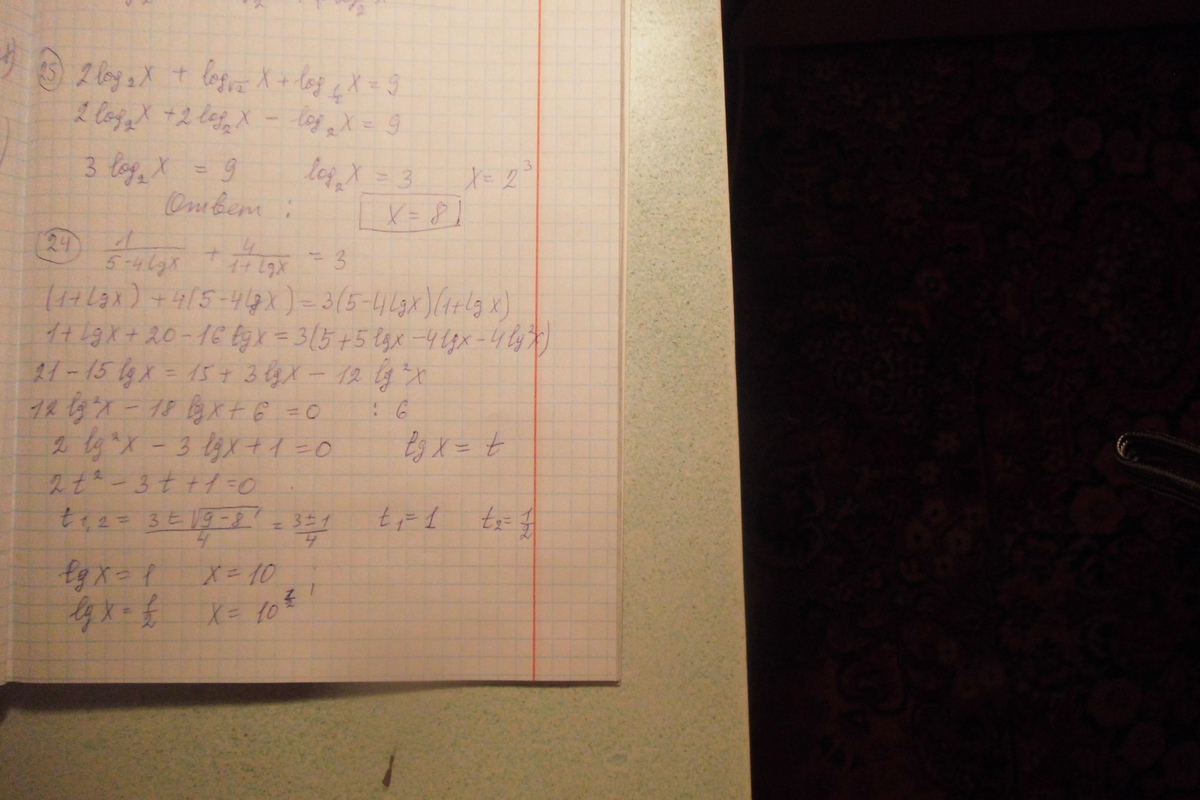 25 2log₂x + log_√2 x + log_1/2 x = 9
2log₂x + 2log₂x - log₂x = 9
3 log₂x = 9 log₂x = 3 x = 2³
Ответ : x = 8
24 1/(5-4lgx) + 4/(1+lgx) = 3
(1+lgx) + 4(5-4lgx) = 3(5-4lgx)(1+lgx)
1+lgx+20-16lgx = 3(5+5lgx-4lgx-4lg²x)
21-15lgx = 15+3lgx-12 lg²x
12lg²x - 18 lgx + 6 = 0 : 6
2 lg²x - 3 lgx + 1 = 0 lgx = t
2t² - 3t + 1 = 0
t₁,₂ = (3±√(9-8))/4 = (3±1)/4 t₁ = 1 t₂ = 1/2
lgx = 1 x = 10 ;
lgx = 1/2 x = 10^(1/2)